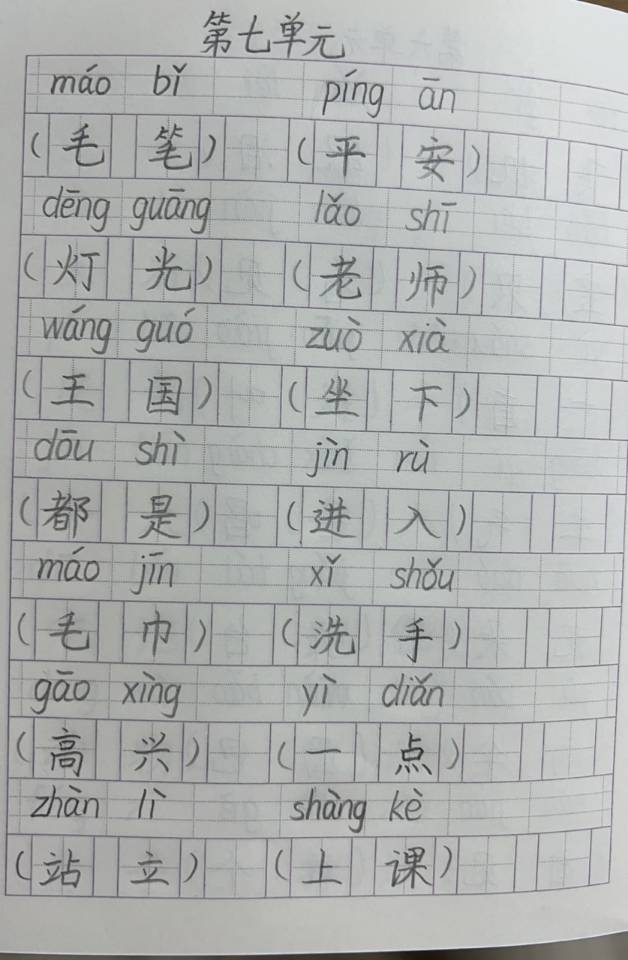 第七单元
máo bǐ píng ān
(毛笔) (平安)
dēng guāng lǎo shī
(灯光) (老师)
wáng guó zuò xià
(王国) (坐下)
dōu shì jìn rù
(都是) (进入)
máo jīn xǐ shǒu
(毛巾) (洗手)
gāo xìng yì diǎn
(高兴) (一点)
zhàn lì shàng kè
(站立) (上课)